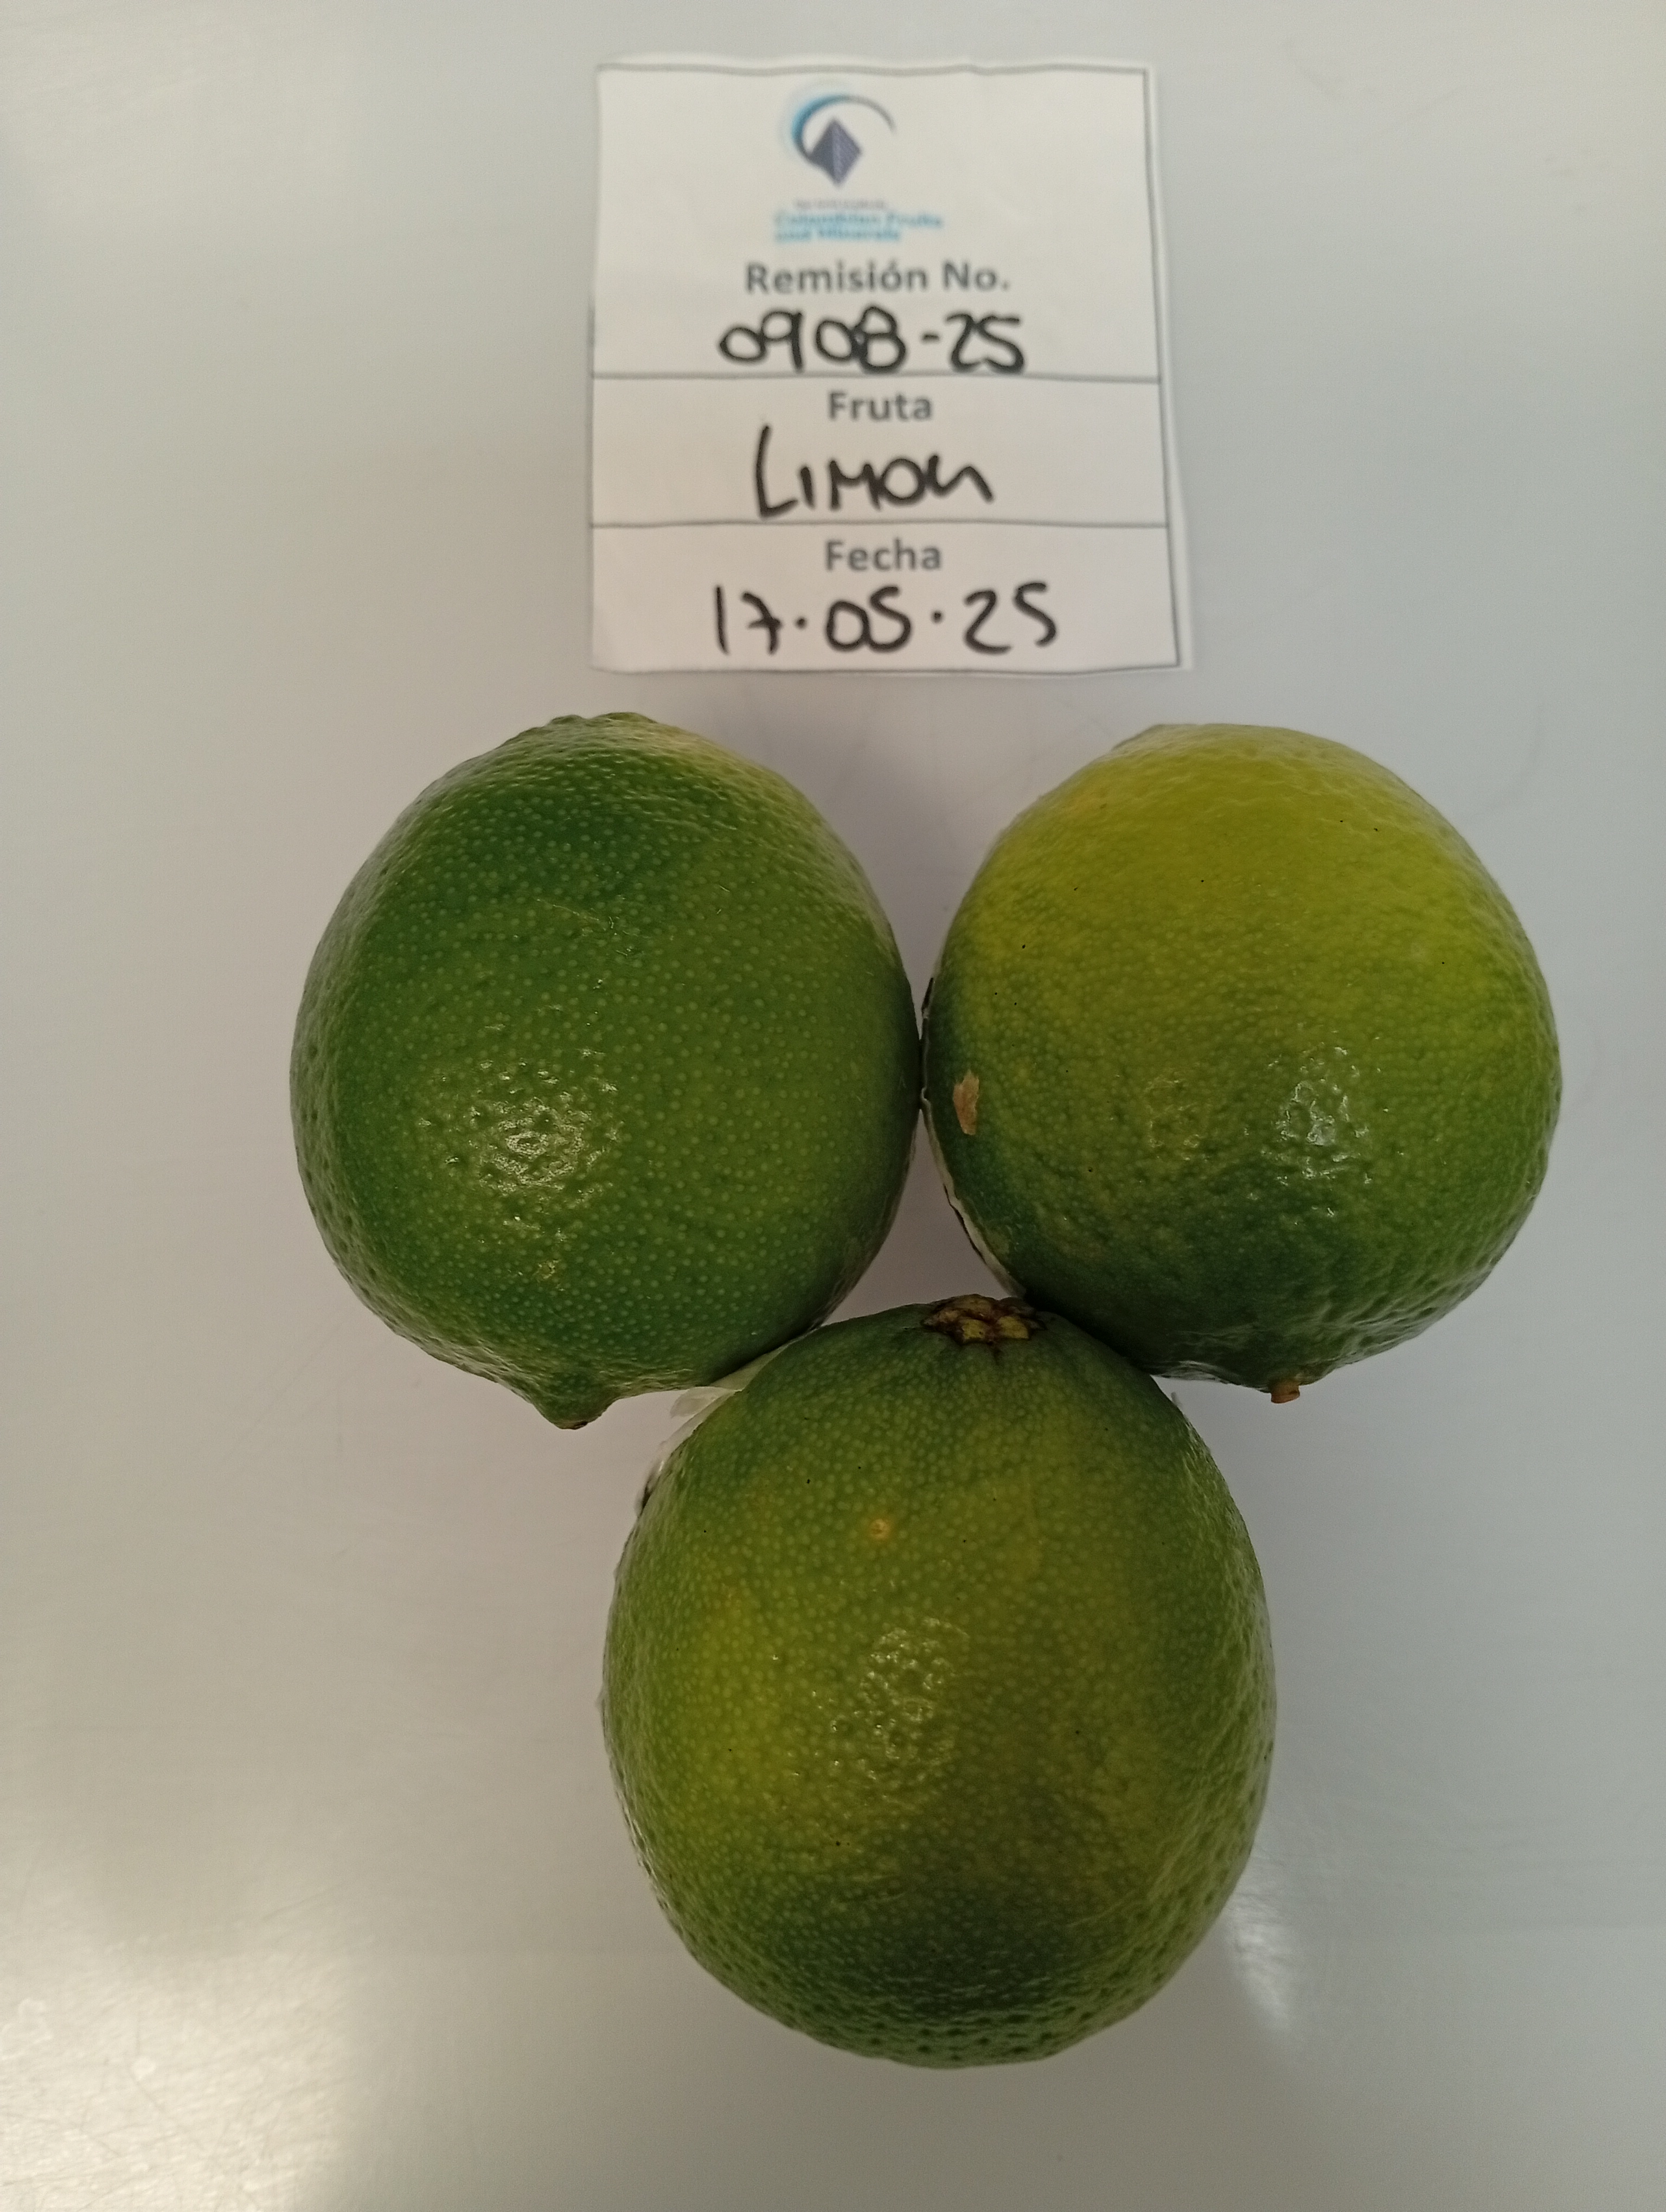 Colombian Fruits
and Minerals
Remisión No.
0908-25
Fruta
LIMON
Fecha
17.05.25